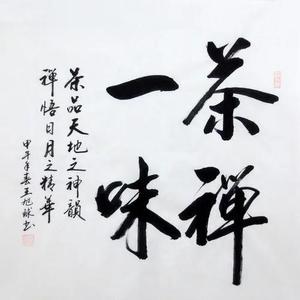 茶禅
一味
茶品天地之神韻
禅悟日月之精華
甲午年春王旭球书